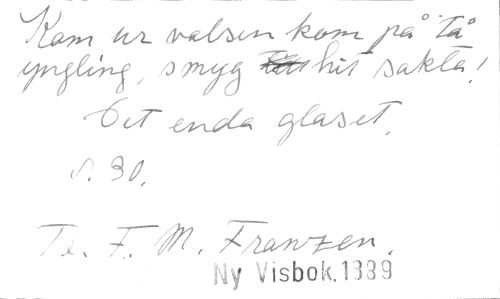 Kom ur valsen kom på tå
yngling, smyg hit sakta!
Det enda glaset.
s. 30.
Te. F. M. Franzen.
Ny Visbok. 1889